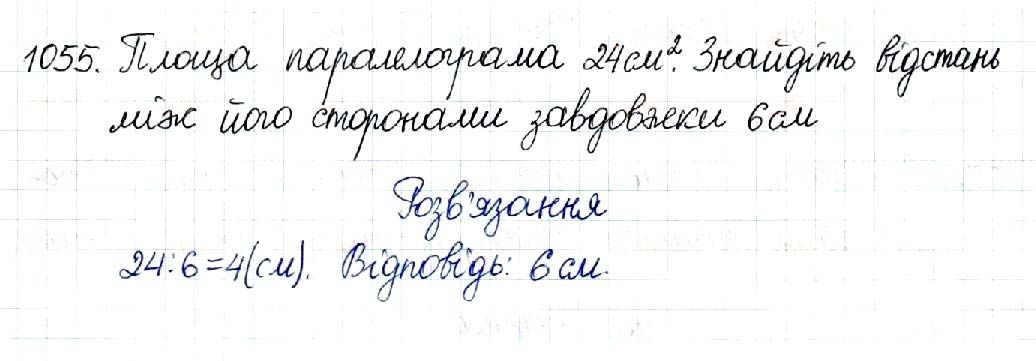 1055. Площа паралелограма 24см². Знайдіть відстань
між його сторонами завдовжки 6см
Розв'язання
24:6=4(см). Відповідь: 6см.